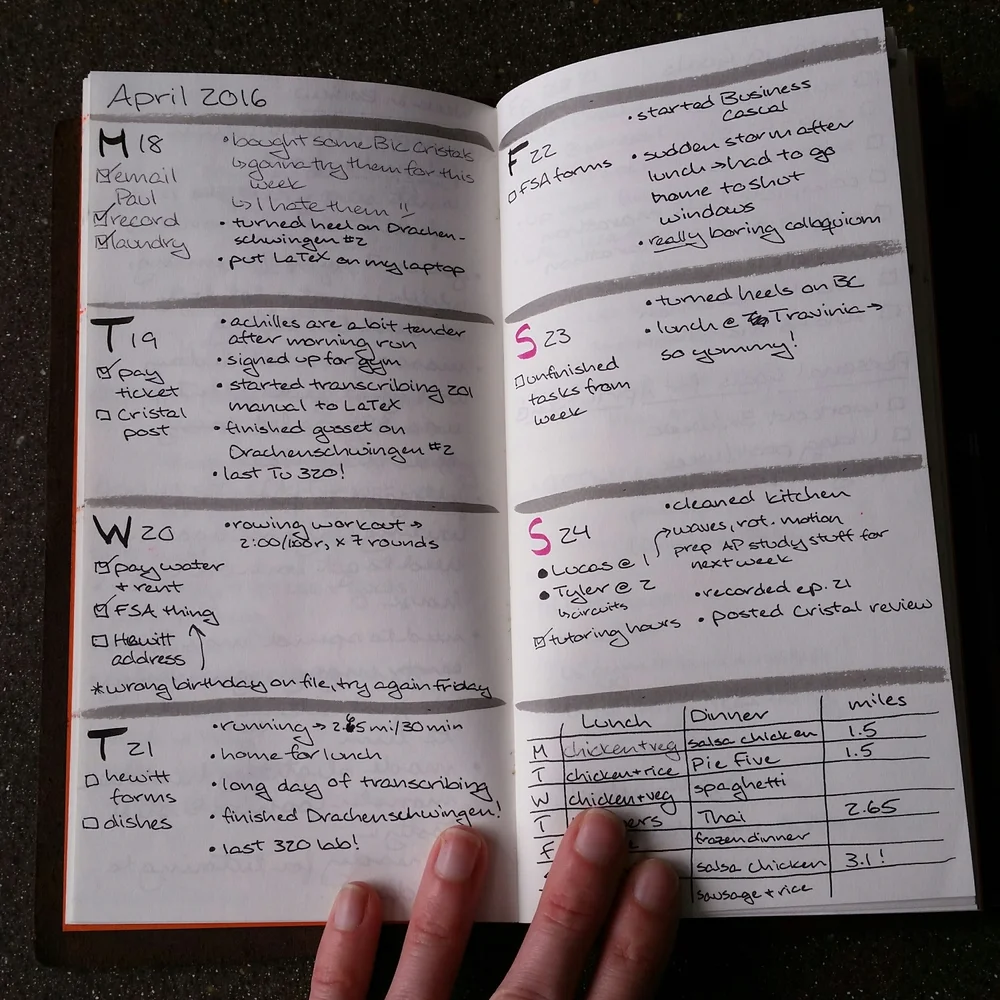 April 2016
M 18
☑ email
Paul
☑ record
☑ laundry
• bought some Bic Cristals
↳ gonna try them for this
week
↳ I hate them
• turned heel on Drachen-
schwingen #2
• put LaTeX on my laptop
T 19
☑ pay
ticket
☐ Cristal
post
• achilles are a bit tender
after morning run
• signed up for gym
• started transcribing 201
manual to LaTeX
• finished gusset on
Drachenschwingen #2
• last Tu 320!
W 20
☑ pay water
+ rent
☑ FSA thing
☐ Hewitt
address
• rowing workout →
2:00/100r, x 7 rounds
*wrong birthday on file, try again Friday
T 21
☐ hewitt
forms
☐ dishes
• running → 2.65 mi/30 min
• home for lunch
• long day of transcribing
• finished Drachenschwingen!
• last 320 lab!
F 22
☐ FSA forms
• started Business
Casual
• sudden storm after
lunch → had to go
home to shut
windows
• really boring colloquium
S 23
☐ unfinished
tasks from
week
• turned heels on BC
• lunch @ Travinia →
so yummy!
S 24
• Lucas @ 1
• Tyler @ 2
↳ circuits
☑ tutoring hours
• cleaned kitchen
→ waves, rot. motion
prep AP study stuff for
next week
• recorded ep. 21
• posted Cristal review
Lunch Dinner miles
M chicken+veg salsa chicken 1.5
T chicken+rice Pie Five 1.5
W chicken+veg spaghetti
T Thai 2.65
F frozen dinner
salsa chicken 3.1!
sausage + rice